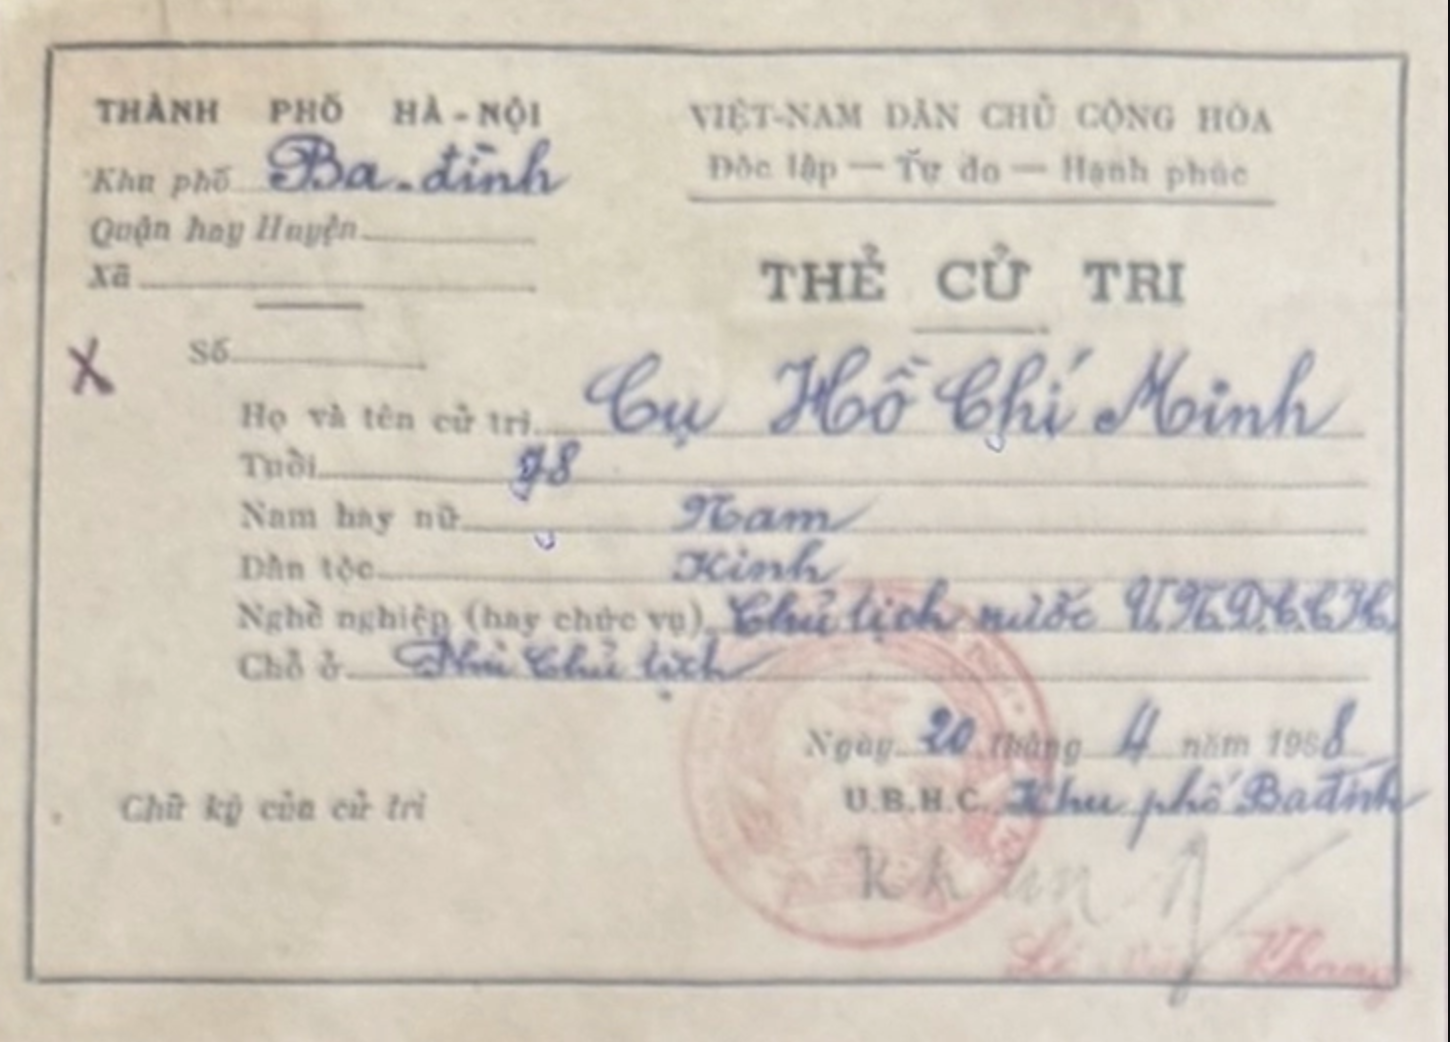 THÀNH PHỐ HÀ-NỘI
Khu phố Ba-đình
Quận hay Huyện
Xã
VIỆT-NAM DÂN CHỦ CỘNG HÒA
Độc lập — Tự do — Hạnh phúc
THẺ CỬ TRI
X
Số
Họ và tên cử tri Cụ Hồ Chí Minh
Tuổi 78
Nam hay nữ Nam
Dân tộc Kinh
Nghề nghiệp (hay chức vụ) Chủ tịch nước V.N.D.C.C.H.
Chỗ ở Phủ Chủ tịch
Ngày 20 tháng 4 năm 1968
U.B.H.C. Khu phố Ba đình
Chữ ký của cử tri
Lê Khang